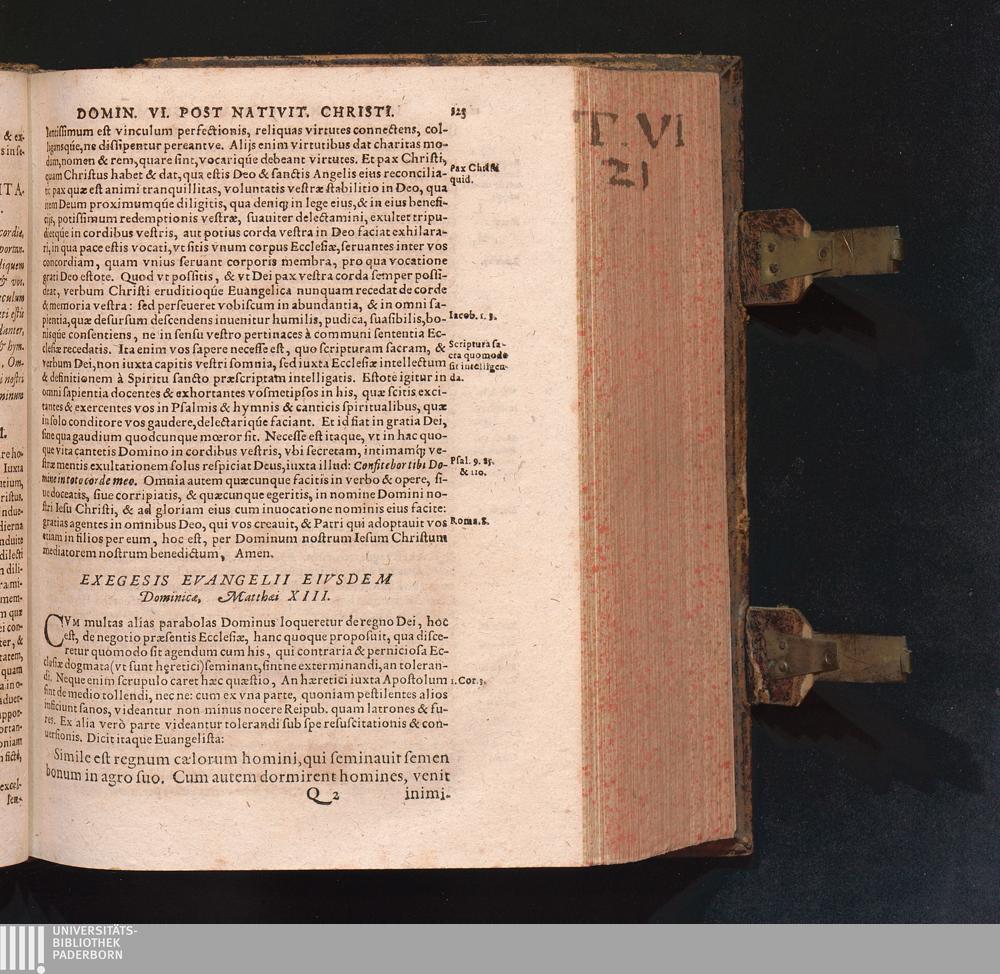 DOMIN. VI. POST NATIVIT. CHRISTI. 123
lentissimum est vinculum perfectionis, reliquas virtutes connectens, col-
ligansq́;, ne dissipentur pereantve. Alijs enim virtutibus dat charitas mo-
dum, nomen & rem, quare sint, vocariq́ue debeant virtutes. Et pax Christi,
quam Christus habet & dat, qua estis Deo & sanctis Angelis eius reconcilia-
ti: pax quæ est animi tranquillitas, voluntatis vestræ stabilitio in Deo, qua
item Deum proximumq́ue diligitis, qua deniq; in lege eius, & in eius benefi-
cijs, potissimum redemptionis vestræ, suauiter delectamini, exultet tripu-
dietq́ue in cordibus vestris, aut potius corda vestra in Deo faciat exhilara-
ri, in qua pace estis vocati, vt sitis vnum corpus Ecclesiæ, seruantes inter vos
concordiam, quam vnius seruant corporis membra, pro qua vocatione
grati Deo estote. Quod vt possitis, & vt Dei pax vestra corda semper possi-
deat, verbum Christi eruditioq́ue Euangelica nunquam recedat de corde
& memoria vestra: sed perseueret vobiscum in abundantia, & in omni sa-
pientia, quæ desursum descendens inuenitur humilis, pudica, suasibilis, bo-
nisq́ue consentiens, ne in sensu vestro pertinaces à communi sententia Ec-
clesiæ recedatis. Ita enim vos sapere necesse est, quo scripturam sacram, &
verbum Dei, non iuxta capitis vestri somnia, sed iuxta Ecclesiæ intellectum
& definitionem à Spiritu sancto præscriptam intelligatis. Estote igitur in
omni sapientia docentes & exhortantes vosmetipsos in his, quæ scitis exci-
tantes & exercentes vos in Psalmis & hymnis & canticis spiritualibus, quæ
in solo conditore vos gaudere, delectariq́ue faciant. Et id fiat in gratia Dei,
sine qua gaudium quodcunque mœror sit. Necesse est itaque, vt in hac quo-
que vita cantetis Domino in cordibus vestris, vbi secretam, intimamq́; ve-
stræ mentis exultationem solus respiciat Deus, iuxta illud: Confitebor tibi Do-
mine in toto corde meo. Omnia autem quæcunque facitis in verbo & opere, si-
ue doceatis, siue corripiatis, & quæcunque egeritis, in nomine Domini no-
stri Iesu Christi, & ad gloriam eius cum inuocatione nominis eius facite:
gratias agentes in omnibus Deo, qui vos creauit, & Patri qui adoptauit vos
etiam in filios per eum, hoc est, per Dominum nostrum Iesum Christum
mediatorem nostrum benedictum, Amen.
Pax Christi
quid.
Iacob. 1. 3.
Scriptura sa-
cra quomodo
sit intelligen-
da.
Psal. 9. 85.
& 110.
Roma. 8.
EXEGESIS EVANGELII EIVSDEM
Dominicæ, Matthæi XIII.
CVM multas alias parabolas Dominus loqueretur de regno Dei, hoc
est, de negotio præsentis Ecclesiæ, hanc quoque proposuit, qua disce-
retur quomodo sit agendum cum his, qui contraria & perniciosa Ec-
clesiæ dogmata (vt sunt hęretici) seminant, sint ne exterminandi, an toleran-
di. Neque enim scrupulo caret hæc quæstio, An hæretici iuxta Apostolum
sint de medio tollendi, nec ne: cum ex vna parte, quoniam pestilentes alios
inficiunt sanos, videantur non minus nocere Reipub. quam latrones & fu-
res. Ex alia verò parte videantur tolerandi sub spe resuscitationis & con-
uersionis. Dicit itaque Euangelista:
1. Cor. 5.
Simile est regnum cælorum homini, qui seminauit semen
bonum in agro suo. Cum autem dormirent homines, venit
Q 2 inimi-
T. VI
21
UNIVERSITÄTS-
BIBLIOTHEK
PADERBORN